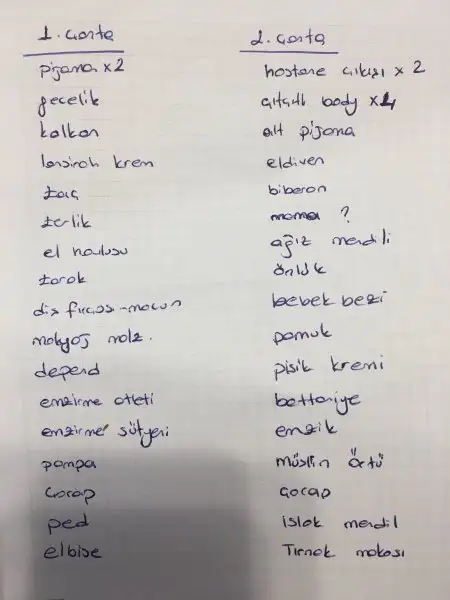 1. çanta
pijama x2
gecelik
kalkan
lansinoh krem
taç
terlik
el havlusu
tarak
diş fırçası-macun
makyaj malz.
depend
emzirme atleti
emzirme sütyeni
pompa
çorap
ped
elbise
2. çanta
hastane çıkışı x 2
çıtçıtlı body x4
alt pijama
eldiven
biberon
mama ?
ağız mendili
önlük
bebek bezi
pamuk
pişik kremi
battaniye
emzik
müslin örtü
çorap
ıslak mendil
Tırnak makası